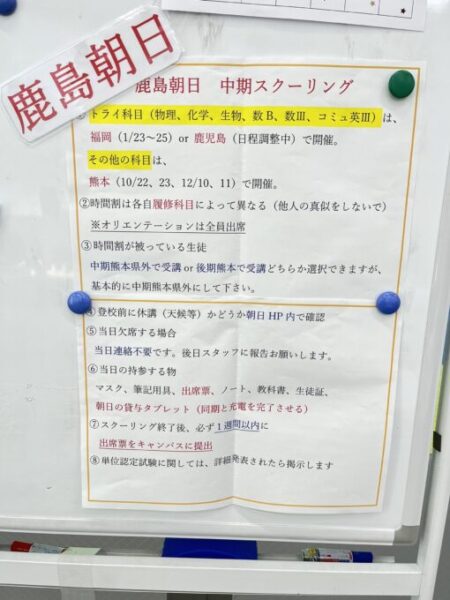 鹿島朝日
鹿島朝日 中期スクーリング
トライ科目（物理、化学、生物、数B、数Ⅲ、コミュ英Ⅲ）は、
福岡（1/23～25）or 鹿児島（日程調整中）で開催。
その他の科目は、
熊本（10/22、23、12/10、11）で開催。
②時間割は各自履修科目によって異なる（他人の真似をしないで）
※オリエンテーションは全員出席
③時間割が被っている生徒
中期熊本県外で受講 or 後期熊本で受講どちらか選択できますが、
基本的に中期熊本県外にして下さい。
④登校前に休講（天候等）かどうか朝日 HP 内で確認
⑤当日欠席する場合
当日連絡不要です。後日スタッフに報告お願いします。
⑥当日の持参する物
マスク、筆記用具、出席票、ノート、教科書、生徒証、
朝日の貸与タブレット（同期と充電を完了させる）
⑦スクーリング終了後、必ず1週間以内に
出席票をキャンパスに提出
⑧単位認定試験に関しては、詳細発表されたら掲示します